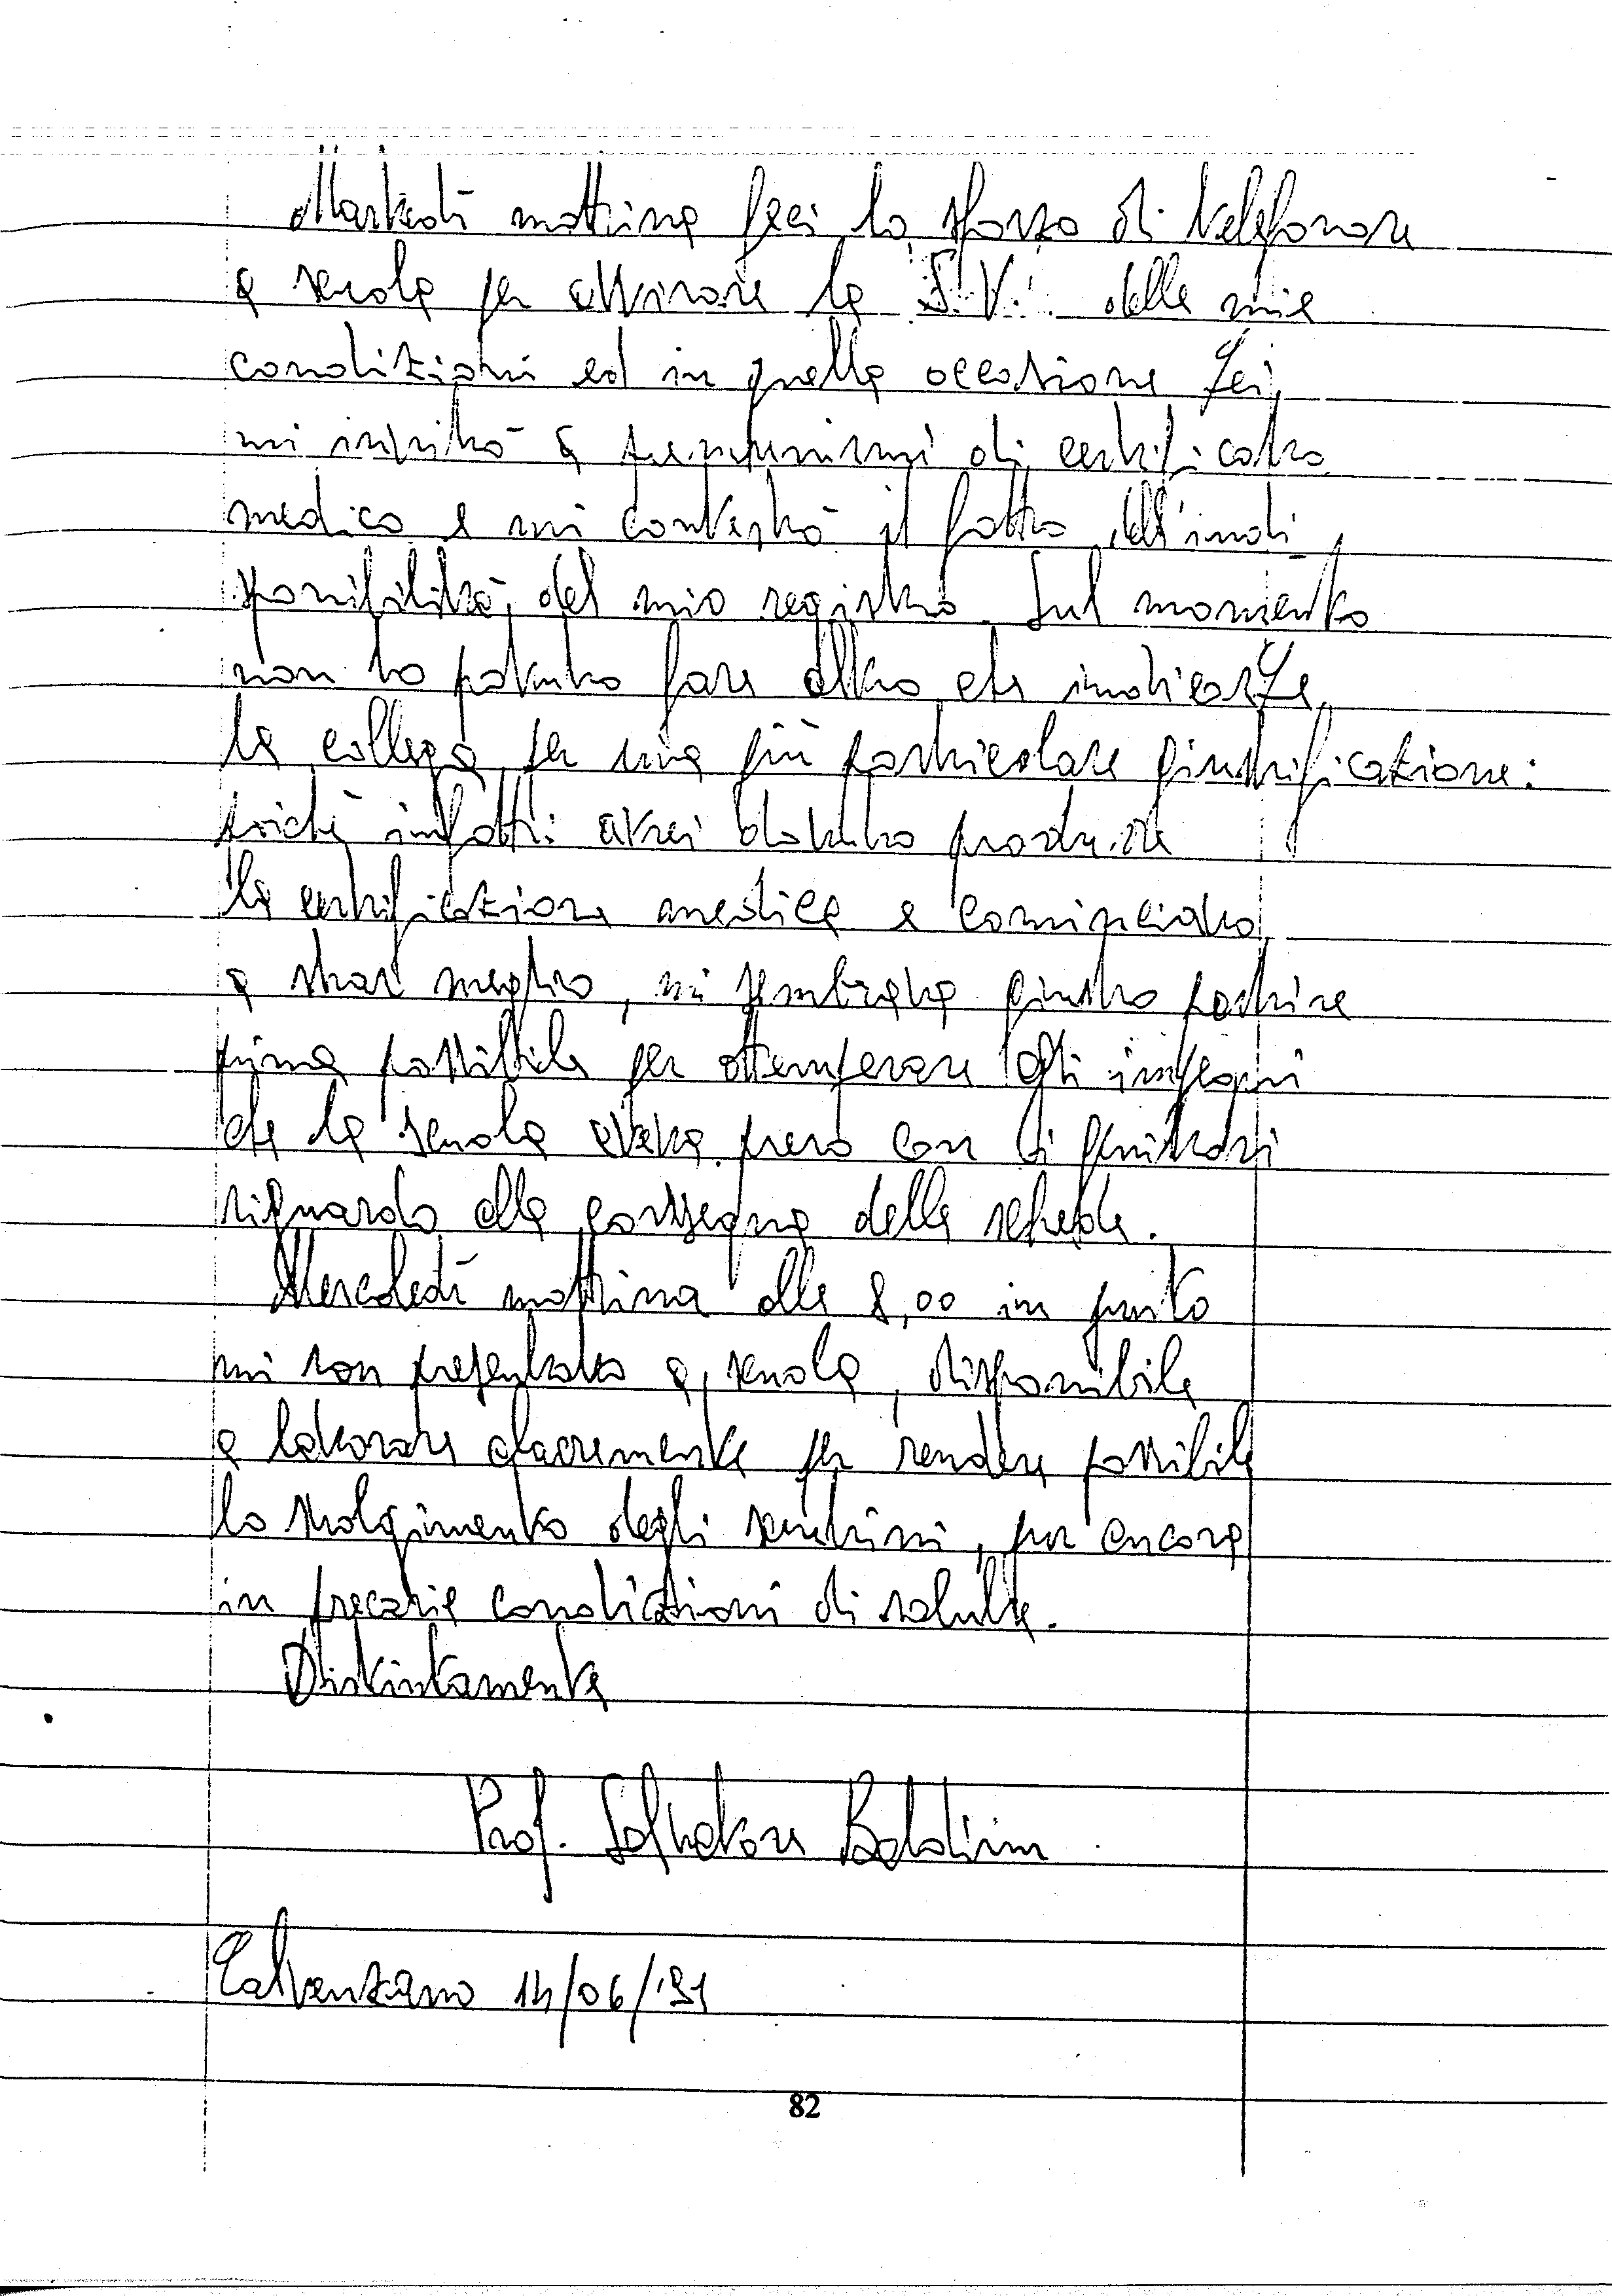 Martedì mattina feci lo sforzo di telefonare
a scuola per avvisare la S.V. delle mie
condizioni ed in quella occasione Lei
mi invitò a premunirmi di certificato
medico e mi contestò il fatto dell'indi
sponibilità del mio registro. Sul momento
non ho potuto fare altro che indicarLe
la collega per una più particolare giustificazione:
poiché infatti avrei dovuto produrre
la certificazione medica e cominciavo
a star meglio, mi sembrava giusto partire
prima possibile per ottemperare agli impegni
che la scuola aveva preso con i genitori
riguardo alla consegna delle schede.
Mercoledì mattina alle 8,00 in punto
mi son presentato a scuola, disponibile
a lavorare alacremente per rendere possibile
lo svolgimento degli scrutini, pur ancora
in precarie condizioni di salute.
Distintamente
Prof. Salvatore Baldini
Calvenzano 14/06/'91
82